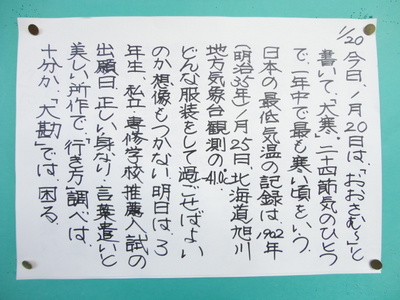 1/20 今日、1月20日は、「おおさむ～」と
書いて、"大寒"。二十四節気のひとつ
で、一年中で最も寒い頃をいう。
日本の最低気温の記録は、1902年
(明治35年)1月25日、北海道旭川
地方気象台観測の-41.0℃
どんな服装をして過ごせばよい
のか想像もつかない。明日は、3
年生、私立・専修学校推薦入試の
出願日。正しい身なり、言葉遣いと
美しい所作で。"行き方"調べは、
十分か。"大勘"では、困る。